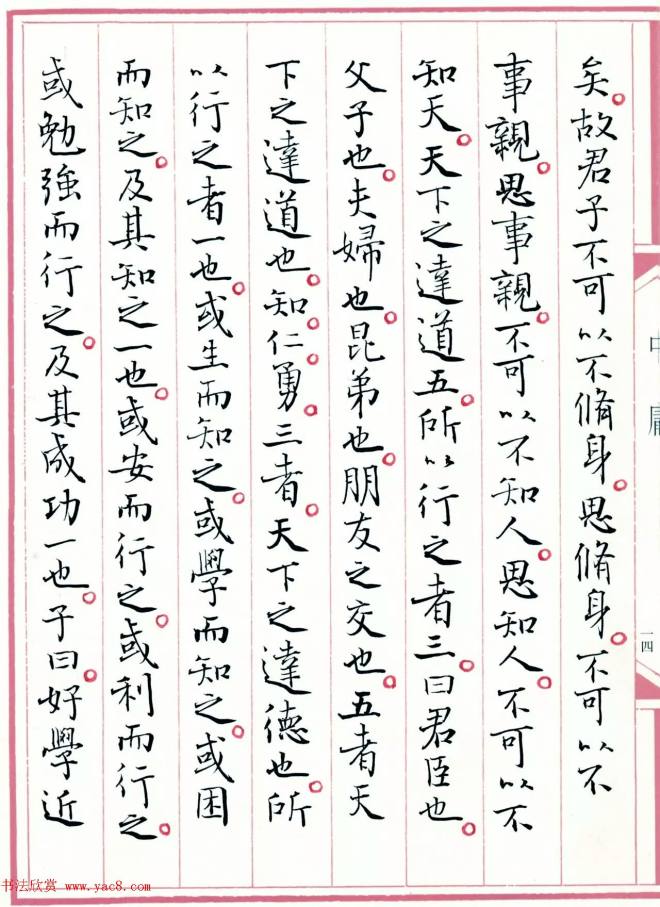 矣。故君子不可以不脩身。思脩身。不可以不
事親。思事親。不可以不知人。思知人。不可以不
知天。天下之達道五。所以行之者三。曰君臣也。
父子也。夫婦也。昆弟也。朋友之交也。五者天
下之達道也。知。仁。勇。三者。天下之達德也。所
以行之者一也。或生而知之。或學而知之。或困
而知之。及其知之一也。或安而行之。或利而行之。
或勉強而行之。及其成功一也。子曰。好學近
中庸
一四
书法欣赏 www.yac8.com